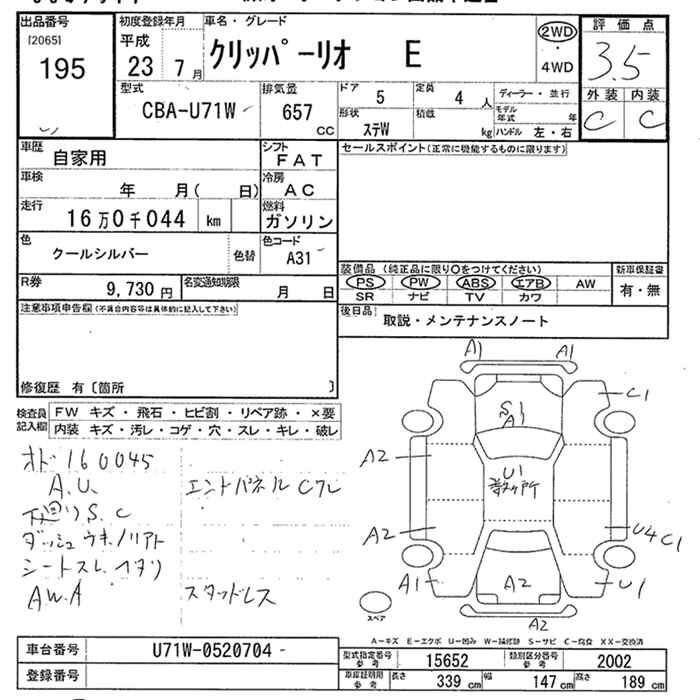 出品番号
[2065]
195
初度登録年月
平成
23 7 月
車名・グレード
クリッパーリオ E
2WD
・
4WD
評価点
3.5
外装 内装
C C
型式
CBA-U71W
排気量
657
CC
ドア
5
定員
4 人
形状
ステW
積載
kg
ディーラー・並行
モデル年式 年
ハンドル 左・右
車歴
自家用
シフト
FAT
車検
年 月( 日)
冷房
AC
走行
16万0千044 km
燃料
ガソリン
色
クールシルバー
色替
色コード
A31
R券
9,730 円
名変通知期限
月 日
セールスポイント(正常に機能するものに限ります)
装備品 (純正品に限り○をつけてください)
PS PW ABS エアB AW
SR ナビ TV カワ
新車保証書
有・無
後日品
取説・メンテナンスノート
注意事項申告欄(不具合内容等は具体的に記入して下さい)
修復歴 有〔箇所 〕
検査員記入欄
FW キズ・飛石・ヒビ割・リペア跡・×要
内装 キズ・汚レ・コゲ・穴・スレ・キレ・破レ
オド160045
A.U.
下廻りS.C
ダッシュウキ.ノリアト
シートスレ.ヘタリ
AW.A
エンドパネルCフレ
スタッドレス
A1 A1
S1
A1
C1
A2
U1
A2
U4 C1
A1
A2
U1
A2
スペア
A-キズ E-エクボ U-凹み W-補修跡 S-サビ C-腐食 XX-交換済
車台番号
U71W-0520704
登録番号
型式指定番号
参考
15652
類別区分番号
参考
2002
車庫証明用
参考
長さ 339 cm
幅 147 cm
高さ 189 cm